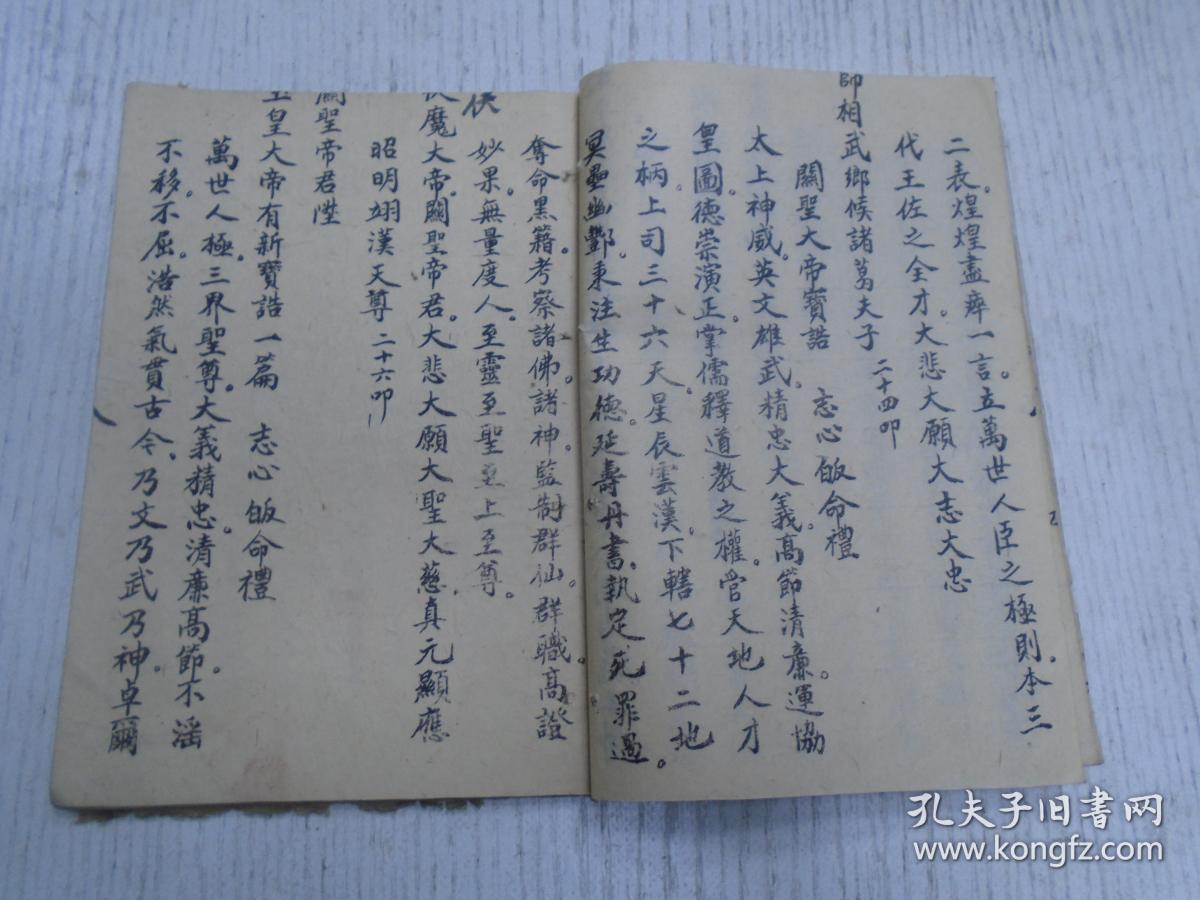 二表。煌煌盡瘁一言。立萬世人臣之極則。本三
代王佐之全才。大悲大願大志大忠
師相武鄉候諸葛夫子 二十四叩
關聖大帝寶誥 志心皈命禮
太上神威。英文雄武。精忠大義。高節清廉。運協
皇圖。德崇演正。掌儒釋道教之權。管天地人才
之柄。上司三十六天。星辰雲漢。下轄七十二地
冥壘幽酆。秉注生功德。延壽丹書。執定死罪過。
奪命黑籍。考察諸佛。諸神。監制群仙。群職。高證
妙果。無量度人。至靈至聖至上至尊。
伏
魔大帝。關聖帝君。大悲大願大聖大慈真元顯應
昭明翊漢天尊 二十六叩
關聖帝君陞
玉皇大帝有新寶誥一篇 志心皈命禮
萬世人極。三界聖尊。大義精忠。清廉高節。不滛
不移。不屈。浩然氣貫古今、乃文乃武乃神。卓爾
孔夫子旧书网
www.kongfz.com